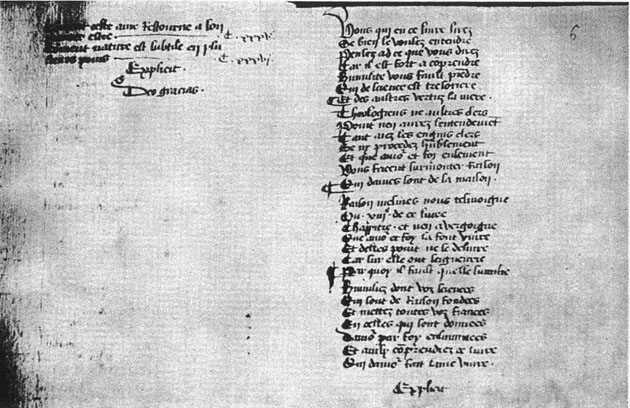 ceste ame Retourne a son
estre C. xxxv.
nature est subtile en plu
sieurs poins C. xxxvi.
Explicit.
Deo gracias.
6
Vous qui en ce livre lirez
Se bien le voulez entendre
Pensez ad ce que vous direz
Car il est fort a cōprendre
Humilite vous fault prēdre
Qui de science est tresoriere
Et des aultres vertuz la mere.
Theologiens ne aultres clers
Point nen aurez lentendemēt
Tant aiez les engins clers
Se ny procedez hūblement
Et que amoʳ et foy ensement
Vous facent surmonter Raison
Qui dames sont de la maison.
Raison mesmes nous tesmoigne
Ou .xiii.ᵉ de ce livre
Chappitre. et nen a vergoigne
Que amoʳ et foy la font vivre
Et delles point ne se delivre
Car sur elle ont seigneurie
Par quoy il fault quelle sumilie
Humiliez dont voz sciences
Qui sont de Raison fondees
Et mettez toutes voz fiances
En celles qui sont donnees
Damoʳ par foy enluminees
Et ainsy cōprendrez ce livre
Qui damoʳ fait lame vivre.
Explicit